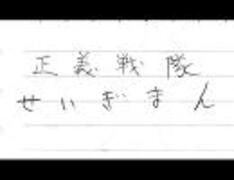 正義戦隊
せいぎまん